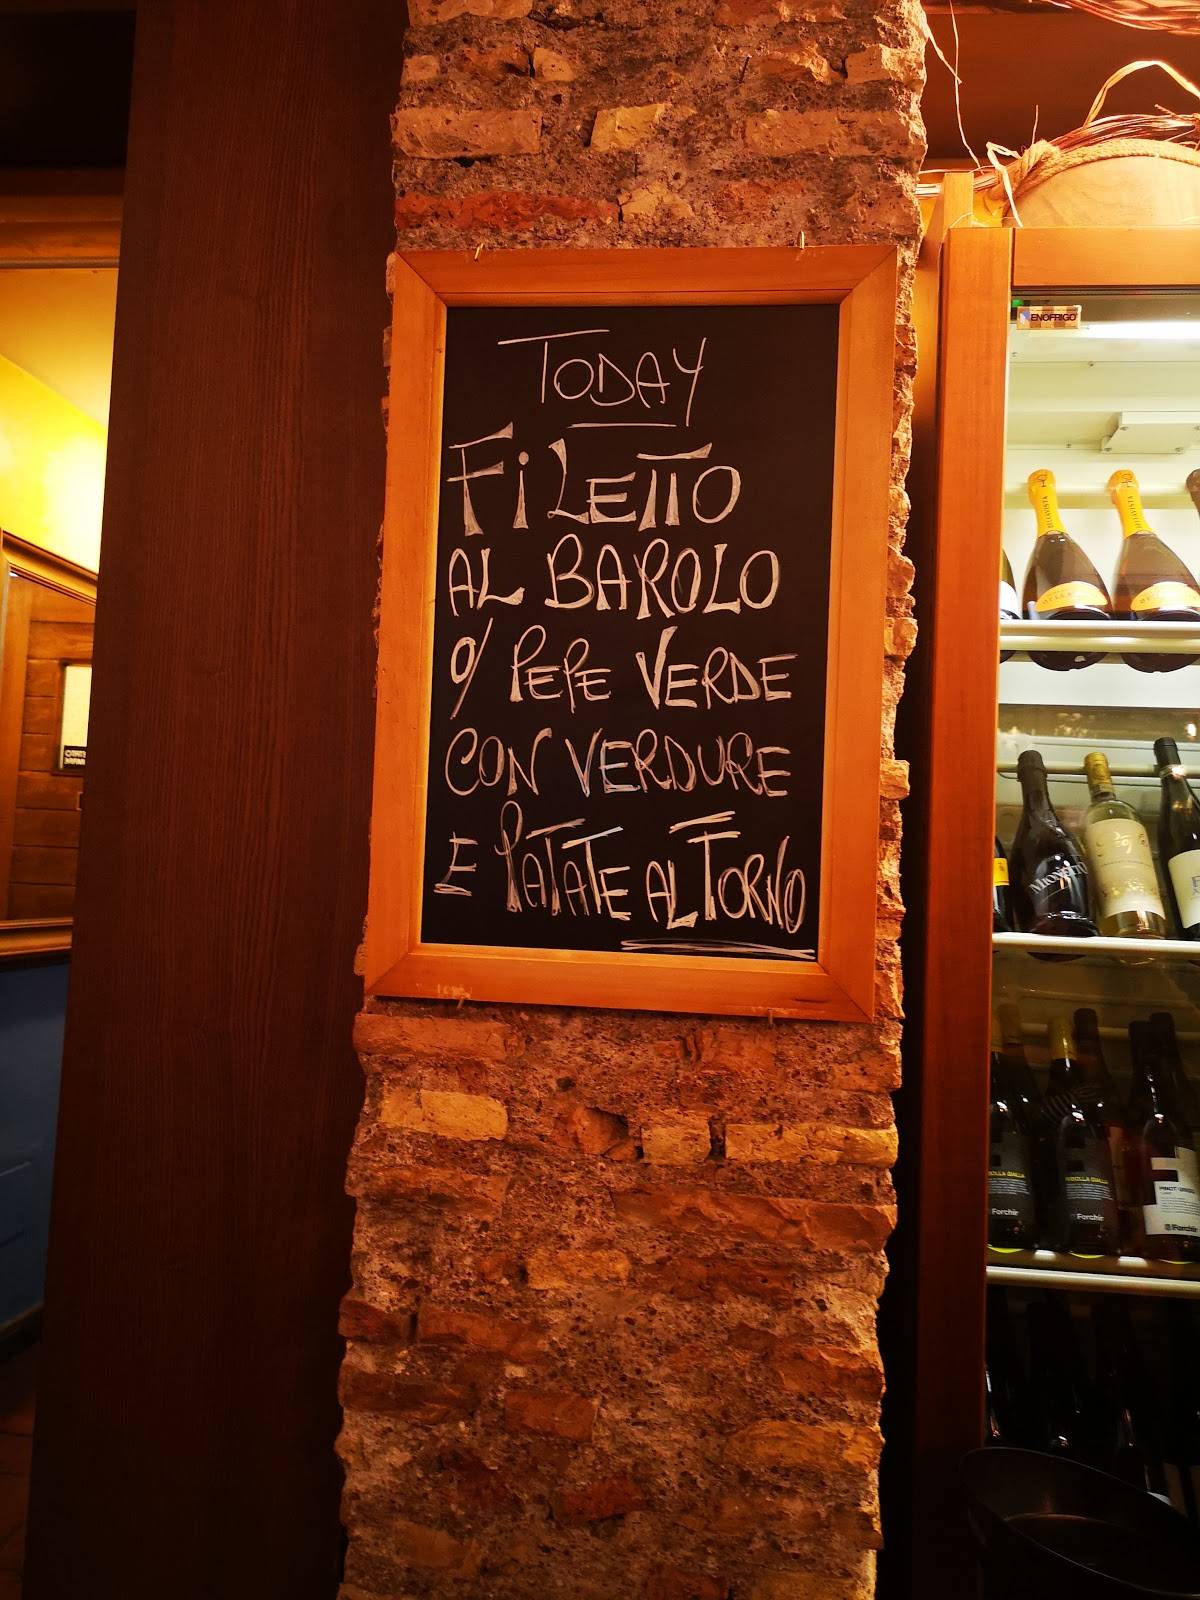 TODAY
FILETTO
AL BAROLO
O/ PEPE VERDE
CON VERDURE
E PATATE AL TORNO
ENOFRIGO
BELLAVISTA
MIONETTO
RIBOLLA GIALLA
Forchir
RIBOLLA GIALLA
Forchir
PINOT GRIGIO
Forchir